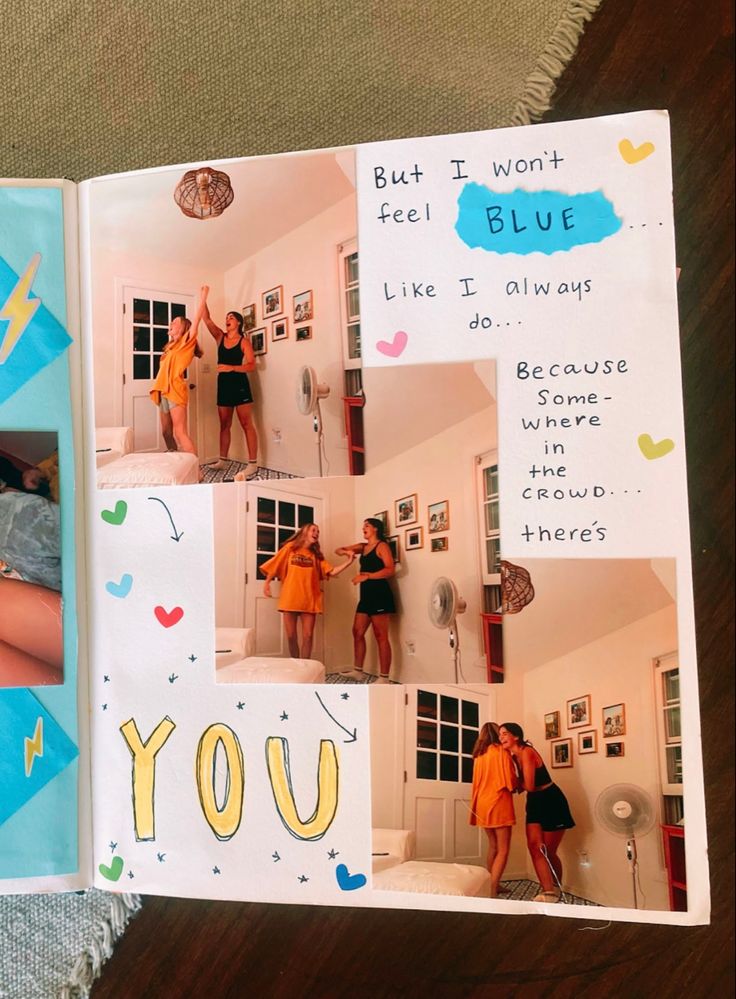 But I won't
feel BLUE ....
Like I always
do...
Because
Some-
where
in
the
CROWD...
there's
YOU